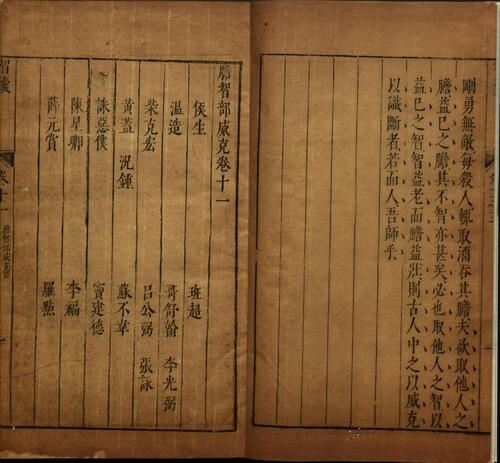 剛勇無敵每殺人輒取酒吞其膽夫欲取他人之
膽益已之膽其不智亦甚矣必也取他人之智以
益已之智智益老而膽益壯則古人中之以威克
以識斷者若而人吾師乎
膽智部威克卷十一
侯生 班超
溫造 哥舒翰 李光弼
柴克宏 呂公弼 張詠
黃蓋 況鍾 蘇不韋
誅惡僕 竇建德
陳星卿 李福
薛元賞 羅點
智囊
卷十一
膽智部威克
一